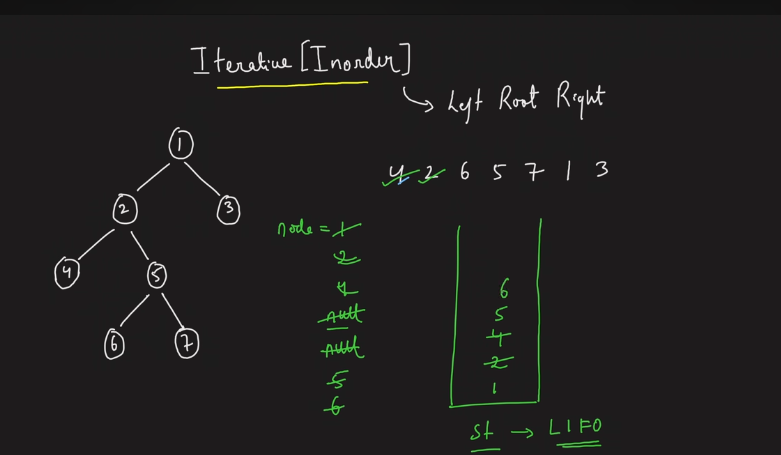 Iterative [Inorder]
Left Root Right
4 2 6 5 7 1 3
1
2 3
4 5
6 7
node = 1
2
4
null
null
5
6
6
5
4
2
1
St → LIFO